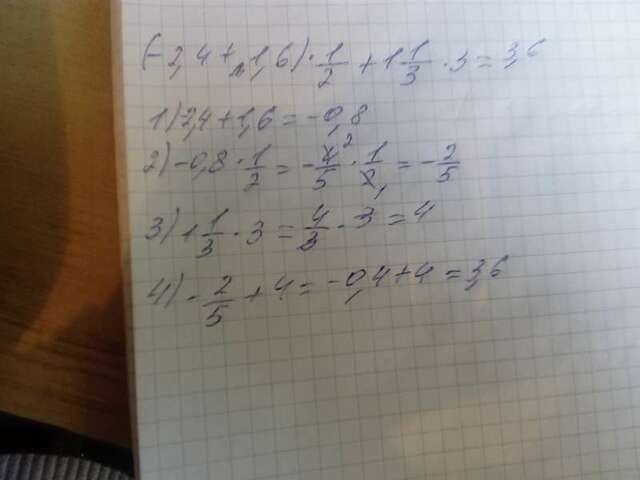 (-2,4+1,6)·1/2+1 1/3·3=3,6
1) -2,4+1,6=-0,8
2) -0,8·1/2=-4/5·1/2=-2/5
3) 1 1/3·3=4/3·3=4
4) -2/5+4=-0,4+4=3,6